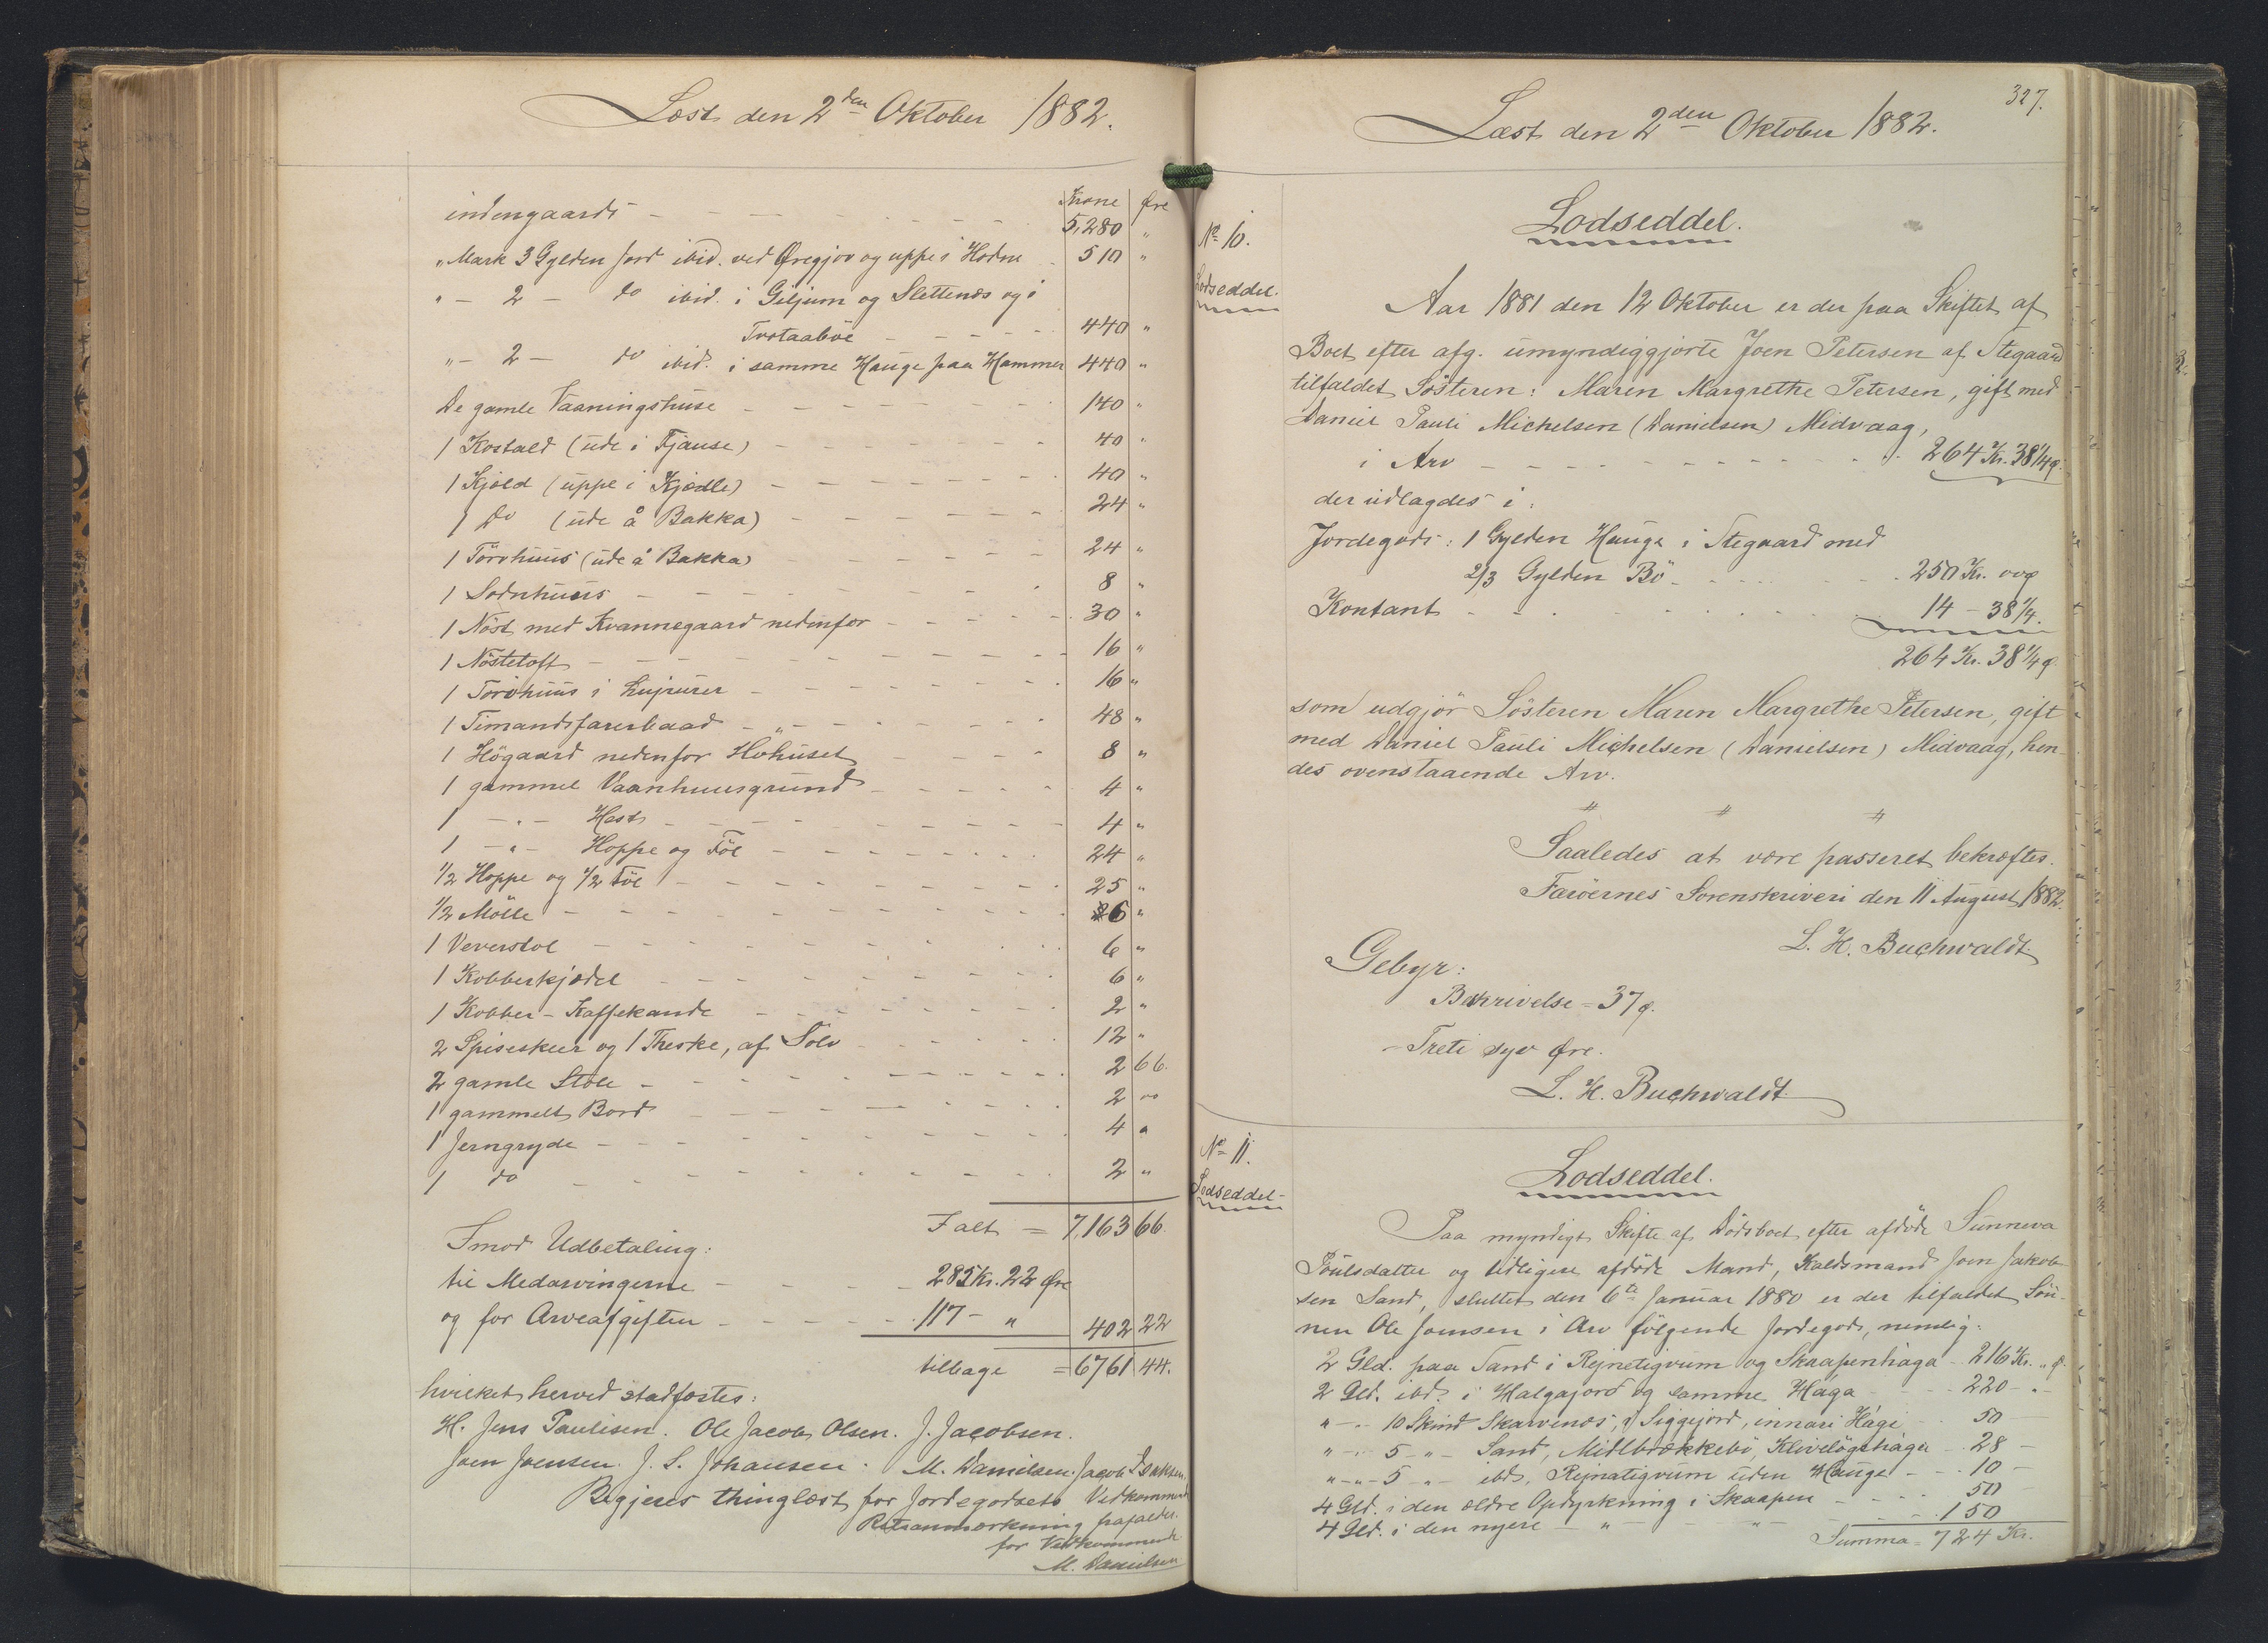 Læst den 2den Oktober 1882.
Krone Øre
indengaards - - - 5,280 "
" Mark 3 Gylden Jord ibid. ved Øregjov og uppe i Hodne 510 "
" - 2 - do ibid. i Giljum og Slettenæs og i
Tvstaabøe - - - 440 "
" - 2 - do ibid. i samme Hauge paa Hammer 440 "
De gamle Vaaningshuse - - - 140 "
1 Kostald (ude i Fjause) - - - 40 "
1 Kjæld (uppe i Kjædle) - - - 40 "
1 Do (ude å Bakka) - - - 24 "
1 Törvhuus (ude å Bakka) - - - 24 "
1 Sodnhuus - - - 8 "
1 Nöst med Kvannegaard nedenfor - - - 30 "
1 Nöstetoft - - - 16 "
1 Törvhuus i - - - 16 "
1 Timandsfarerbaad - " - 48 "
1 Högaard nedenfor Hvhuset - - - 8 "
1 gammel Vaanhuusgrund - - - 4 "
1 - " - Hest - - - 4 "
1 - " - Hoppe og Föl - - - 24 "
1/2 Hoppe og 1/2 Föl - - - 25 "
1/2 Mölle - - - 26 "
1 Veverstol - - - 6 "
1 Kobberkjædel - - - 6 "
1 Kobber-Kaffekande - - - 2 "
2 Spiseskeer og 1 Theske, af Sölv - - - 12 "
2 gamle Stole - - - 2 66.
1 gammelt Bord - - - 2 "
1 Jerngryde - - - 4 "
1 do - - - 2 "
Ialt = 7,163 66
Imod Udbetaling:
til Medarvingerne - - - 285 Kr. 22 Øre
og for Arveafgiften - - - 117 - " 402 22
tilbage = 6761 44.
hvilket herved stadfæstes:
H. Jens Paulisen. Ole Jacob Olsen. J. Jacobsen.
Joen Joensen. J. S. Johansen. M. Danielsen. Jacob Isaksen.
Begjeres thinglæst for Jordegodsets Vedkommende
Retsanmærkning frafalder.
for Vedkommende
M. Danielsen
327.
Læst den 2den Oktober 1882.
No 10.
Lodseddel.
Lodseddel.
Aar 1881 den 12 Oktober er der paa Skiftet af
Boet efter afg. umyndiggjorte Joen Petersen af Stegaard
tilfaldet Sösteren: Maren Margrethe Petersen, gift med
Daniel Pauli Michelsen (Danielsen) Midvaag,
i Arv - - - 264 Kr. 38 1/4 ø.
der udlagdes i:
Jordegods: 1 Gylden Hauge i Stegaard med
2/3 Gylden Bö - - - 250 Kr. 00 ø
Kontant - - - 14 - 38 1/4.
264 Kr. 38 1/4 ø.
som udgjör Sösteren Maren Margrethe Petersen, gift
med Daniel Pauli Michelsen (Danielsen) Midvaag, hen-
des ovenstaaende Arv.
" " "
Saaledes at være passeret bekræftes.
Færöernes Sorenskriveri den 11 August 1882.
L. H. Buchwaldt.
Gebyr:
Beskrivelse = 37 ø.
- Treti syv Øre.
L. H. Buchwaldt.
No 11.
Lodseddel.
Lodseddel.
Paa myndigt Skifte af Dödsboet efter afdöde Sunneva
Poulsdatter og tidligere afdöde Mand, Kaldsmand Joen Jakob-
sen Sand, sluttet den 6te Januar 1880 er der tilfaldet Sön-
nen Ole Joensen i Arv fölgende Jordegods, nemlig:
2 Gld. paa Sand i Rejnetigvum og Skaapenhaga - 216 Kr. " ø.
2 Gld. ibd. i Halgajord og samme Hága - - 220 - " -
" - " 10 Skind Skarvenæs, i Siggijord, innari Hági - 50 -
" - " 5 - " - Sand, Midlbrekkebö, Klivelögshága - 28 -
" - " - 5 - " - ibd. Rejnatigvum uden Hauge - - 10 -
4 Gld. i den ældre Opdyrkning i Skaapen - - - 50
4 Gld. i den nyere - " - - " - - 150
Summa = 724 Kr.